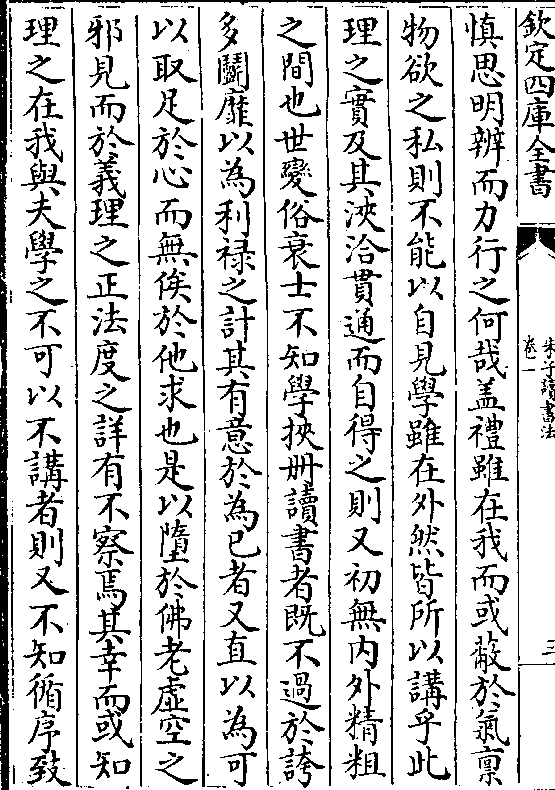 欽定四庫全書
朱子讀書法
卷一
三
慎思明辨而力行之何哉盖禮雖在我而或蔽於氣禀
物欲之私則不能以自見學雖在外然皆所以講乎此
理之實及其浹洽貫通而自得之則又初無内外精粗
之間也世變俗衰士不知學挾册讀書者既不過於誇
多鬭靡以為利禄之計其有意於為已者又直以為可
以取足於心而無俟於他求也是以墮於佛老虚空之
邪見而於義理之正法度之詳有不察焉其幸而或知
理之在我與夫學之不可以不講者則又不知循序致